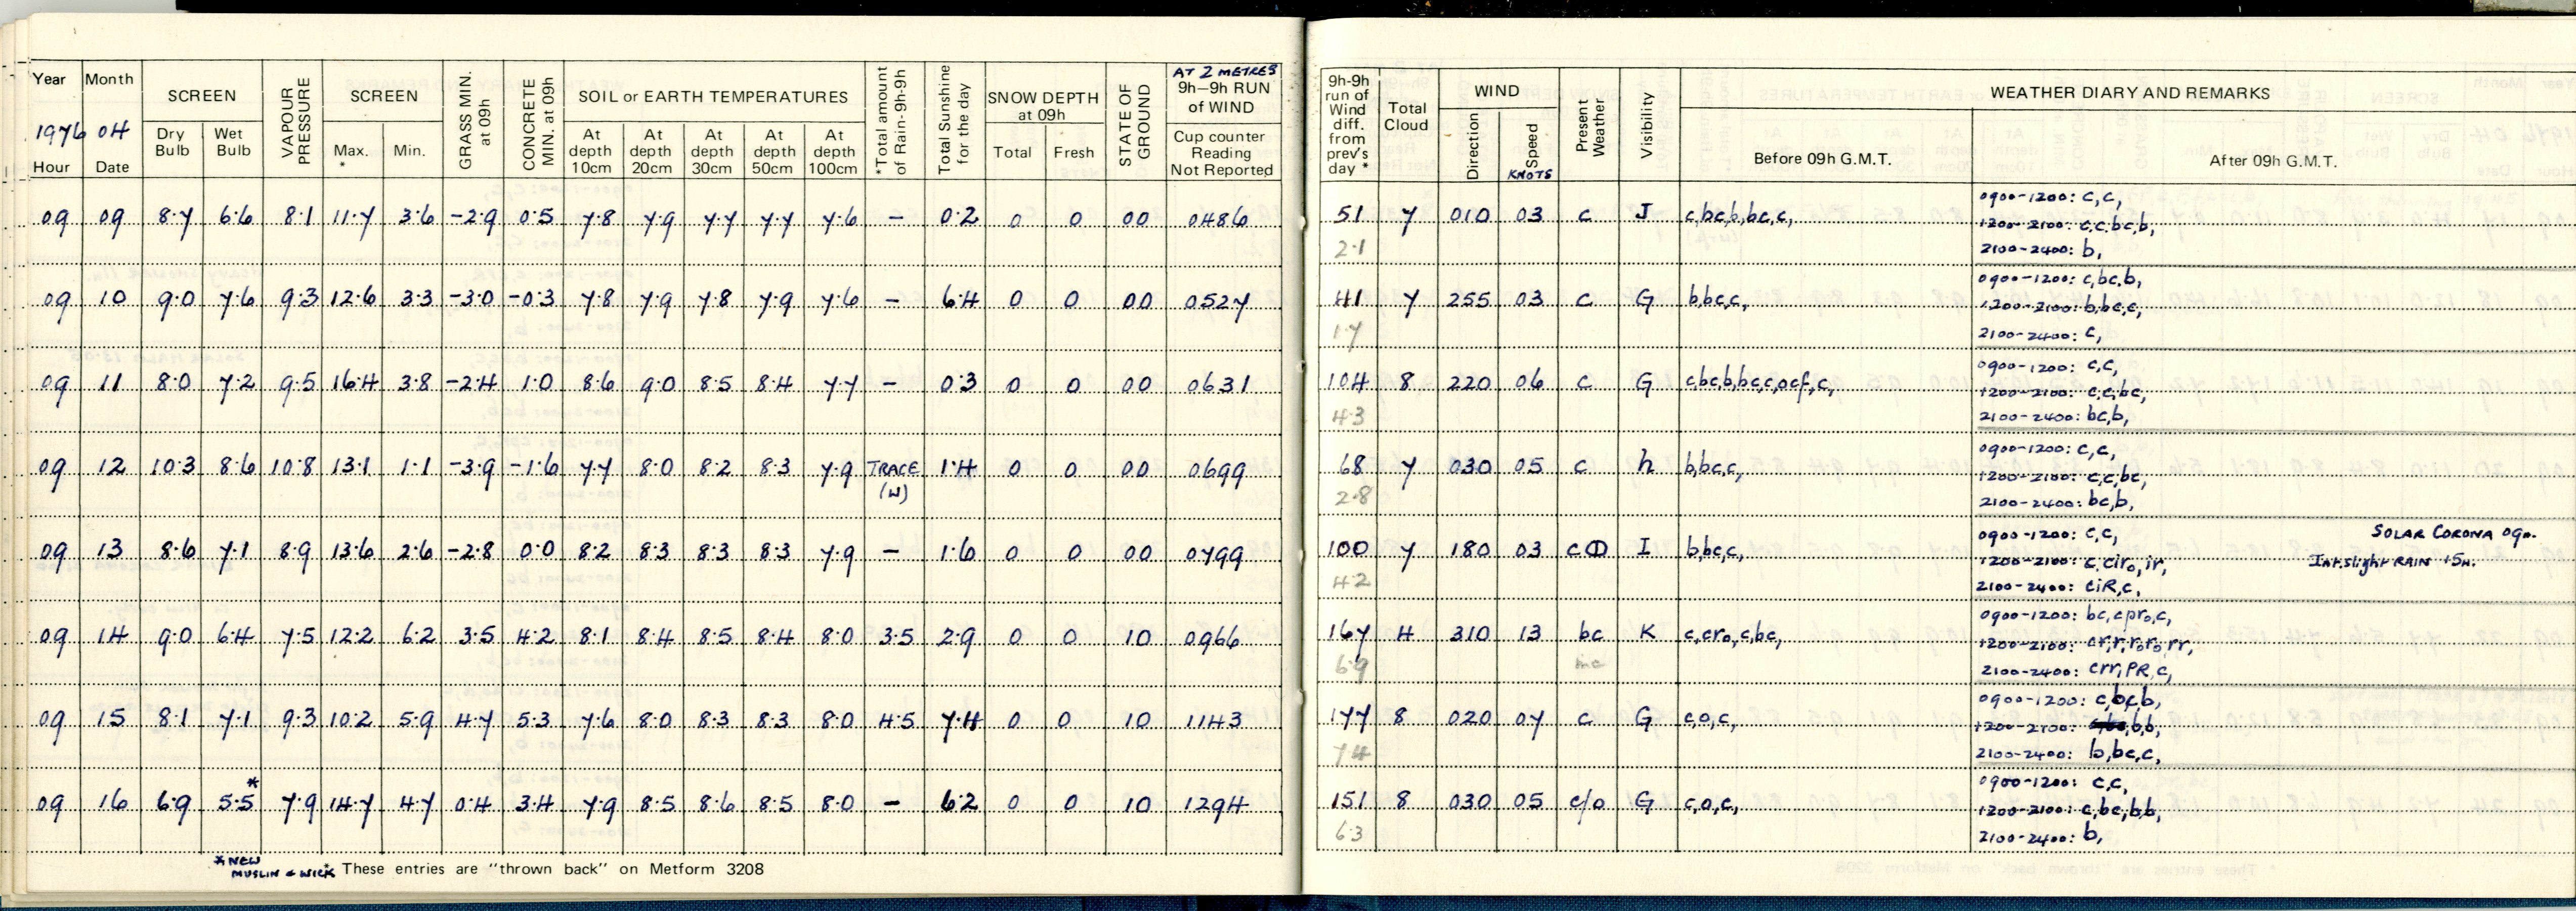 Year Month SCREEN VAPOUR PRESSURE SCREEN GRASS MIN. at 09h CONCRETE MIN. at 09h SOIL or EARTH TEMPERATURES *Total amount of Rain-9h-9h Total Sunshine for the day SNOW DEPTH at 09h STATE OF GROUND AT 2 METRES 9h-9h RUN of WIND
1976 04 Dry Bulb Wet Bulb Max. * Min. At depth 10cm At depth 20cm At depth 30cm At depth 50cm At depth 100cm Total Fresh Cup counter Reading Not Reported
Hour Date
09 09 8.7 6.6 8.1 11.7 3.6 -2.9 0.5 7.8 7.9 7.7 7.7 7.6 - 0.2 0 0 00 0486
09 10 9.0 7.6 9.3 12.6 3.3 -3.0 -0.3 7.8 7.9 7.8 7.9 7.6 - 6.4 0 0 00 0527
09 11 8.0 7.2 9.5 16.4 3.8 -2.4 1.0 8.6 9.0 8.5 8.4 7.7 - 0.3 0 0 00 0631
09 12 10.3 8.6 10.8 13.1 1.1 -3.9 -1.6 7.7 8.0 8.2 8.3 7.9 TRACE 1.4 0 0 00 0699
(W)
09 13 8.6 7.1 8.9 13.6 2.6 -2.8 0.0 8.2 8.3 8.3 8.3 7.9 - 1.6 0 0 00 0799
09 14 9.0 6.4 7.5 12.2 6.2 3.5 4.2 8.1 8.4 8.5 8.4 8.0 3.5 2.9 0 0 10 0966
09 15 8.1 7.1 9.3 10.2 5.9 4.7 5.3 7.6 8.0 8.3 8.3 8.0 4.5 7.4 0 0 10 1143
09 16 6.9 5.5* 7.9 14.7 4.7 0.4 3.4 7.9 8.5 8.6 8.5 8.0 - 6.2 0 0 10 1294
* NEW
MUSLIN & WICK * These entries are "thrown back" on Metform 3208
9h-9h run of Wind diff. from prev's day * Total Cloud WIND Present Weather Visibility WEATHER DIARY AND REMARKS
Direction Speed KNOTS Before 09h G.M.T. After 09h G.M.T.
0900-1200: c,c,
51 7 010 03 c J c,bc,b,bc,c, 1200-2100: c,c,bc,b,
2.1 2100-2400: b,
0900-1200: c,bc,b,
41 7 255 03 c G b,bc,c, 1200-2100: b,bc,c,
1.7 2100-2400: c,
0900-1200: c,c,
104 8 220 06 c G c,bc,b,bc,c,ocf,c, 1200-2100: c,c,bc,
4.3 2100-2400: bc,b,
0900-1200: c,c,
68 7 030 05 c h b,bc,c, 1200-2100: c,c,bc,
2.8 2100-2400: bc,b,
0900-1200: c,c, SOLAR CORONA 09H.
100 7 180 03 c I b,bc,c, 1200-2100: c,ciro,ir, Int.slight RAIN 15H.
4.2 2100-2400: ciR,c,
0900-1200: bc,cpro,c,
167 4 310 13 bc K c,cro,c,bc, 1200-2100: cr,r,roro,rr,
6.9 2100-2400: crr,PR,c,
0900-1200: c,bc,b,
177 8 020 07 c G c,o,c, 1200-2100: b,b,
7.4 2100-2400: b,bc,c,
0900-1200: c,c,
151 8 030 05 c/o G c,o,c, 1200-2100: c,bc,b,b,
6.3 2100-2400: b,